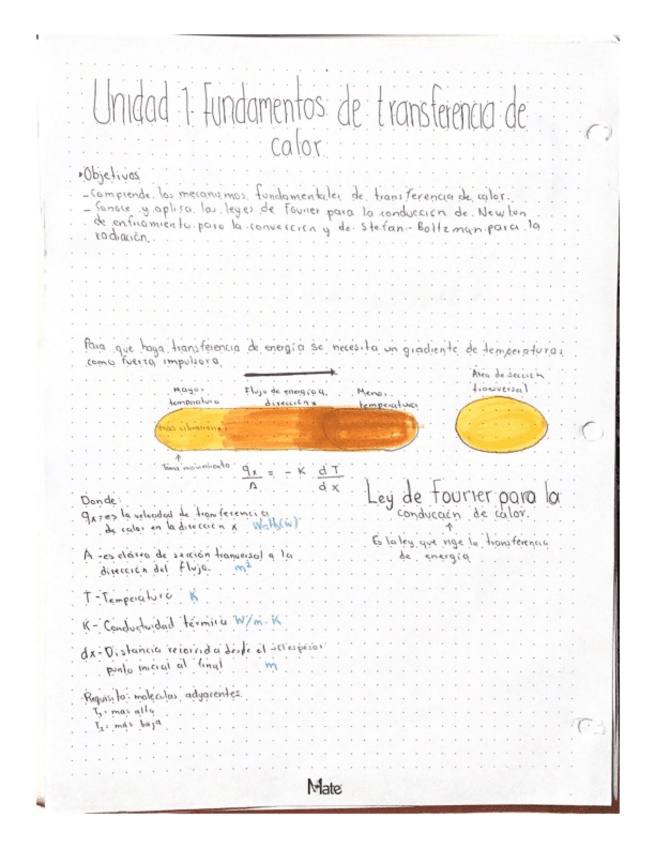 Unidad 1: Fundamentos de transferencia de
calor.
•Objetivos
- Comprende los mecanismos fundamentales de transferencia de calor.
- Conoce y aplica las leyes de Fourier para la conducción de Newton
de enfriamiento para la convección y de Stefan-Boltzman para la
radiación.
Para que haya transferencia de energía se necesita un gradiente de temperaturas
como fuerza impulsora.
Mayor
temperatura
Flujo de energía q,
dirección x
Menor
temperatura
Área de sección
transversal
más vibraciones
↑
movimiento
qx/A = - K dT/dx
Ley de Fourier para la
conducción de calor.
↑
Es la ley que rige la transferencia
de energía
Donde:
qx= es la velocidad de transferencia
de calor en la dirección x Watts(w)
A - es el área de sección transversal a la
dirección del flujo. m²
T - Temperatura K
K - Conductividad térmica W/m·K
dx - Distancia recorrida desde el → el espesor
punto inicial al final m
Requisito: moléculas adyacentes.
T₁ = mas alta
T₂ = más baja
Mate